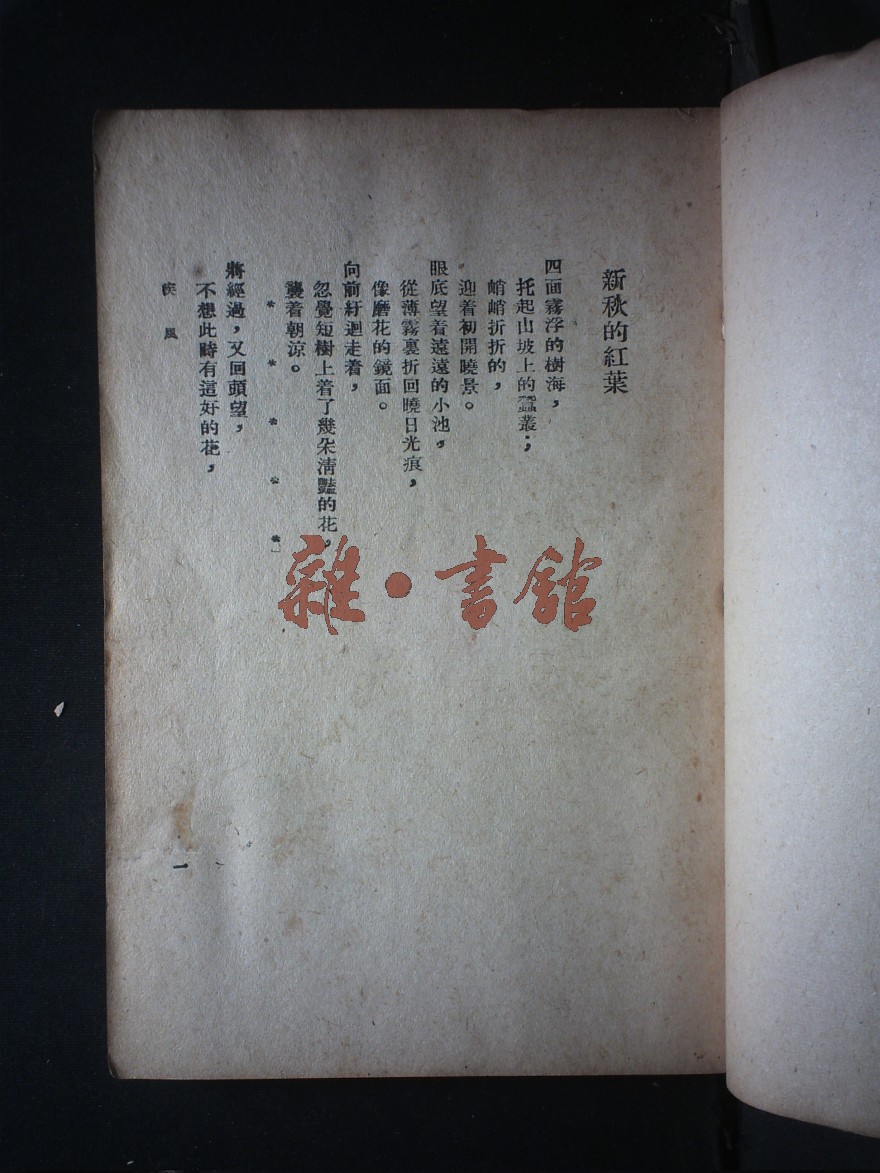 新秋的紅葉
四面霧浮的樹海，
托起山坡上的蠶叢；
峭峭折折的，
迎着初開曉景。
眼底望着遠遠的小池，
從薄霧裏折回曉日光痕，
像磨花的鏡面。
向前紆迴走着，
忽覺短樹上着了幾朵清豔的花，
襲着朝涼。
＊＊＊＊＊
將經過，又回頭望，
不想此時有這好的花，
疾風
一
雜·書館